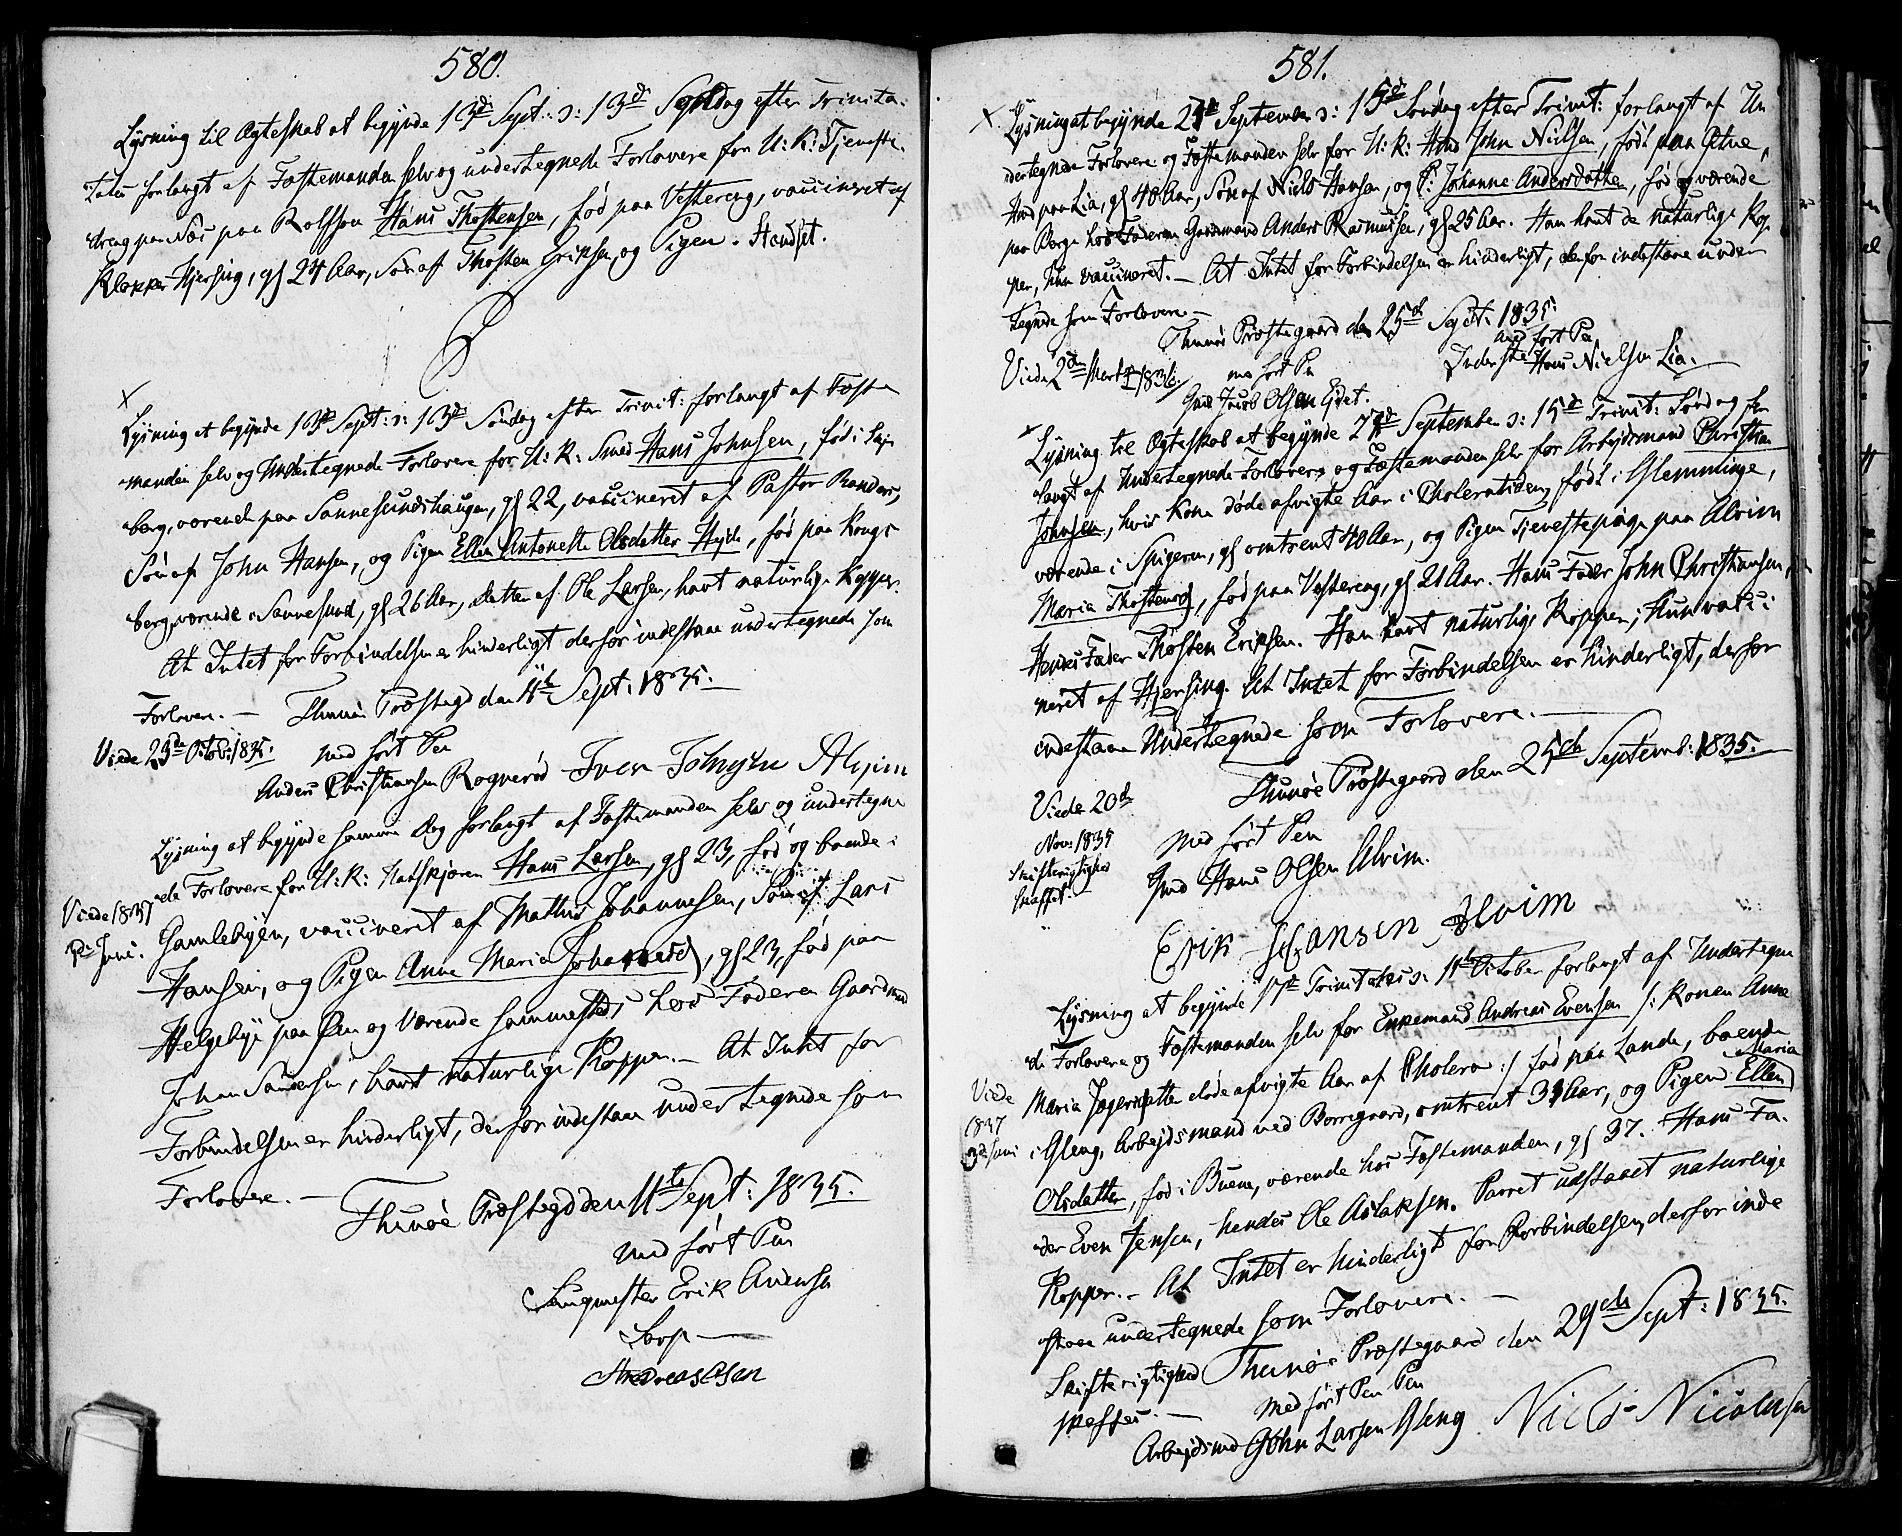 580.
Lysning til Ægteskab at begynde 13de Sept: ɔ: 13de Søndag efter Trinita-
tatis forlangt af Fæstemanden selv og undertegnede Forlovere for U: K: Tjeneste-
dreng paa Næs paa Rolfsøn Hans Thostensen, fød paa Vestereng, vaccineret af
Klokker Hjersing, gl 24 Aar, Søn af Thosten Eriksen, og Pigen. Hendset.
X
Lysning at begynde 13de Sept: ɔ: 13de Søndag efter Trinit: forlangt af Fæste
manden selv og Undertegnede Forlovere for U: K: Smed Hans Johnsen, fød i
berg, værende paa Sannesundshaugen, gl 22, vaccineret af Pastor Randers,
Søn af John Hansen, og Pigen Ellen Antonette Olsdatter Hejde, fød paa Krogs
berg, værende i Sannesund, gl 26 Aar, Datter af Ole Larsen, havt naturlige Kopper.
At Intet for Forbindelsen er hinderligt derfor indestaae undertegnede som
Forlovere. — Thunøe Præstegd den 11te Sept: 1835.
Viede 23de Octob: 1835. med ført Pen
Anders Christiansen Rognerød Iver Johnsen Alvim
Lysning at begynde samme Dag forlangt af Fæstemanden selv og undertegne
de Forlovere for U: K: Hans Larsen, gl 23, fød og boende i
Viede 1837
Juni.
Gamlebyen, vaccineret af Mathis Johannesen, Søn af Lars
Hansen, og Pigen Anne Maria Johansd, gl 23, fød paa
Helgebye paa Øen og værende sammesteds hos Faderen Gaardmd
Johan Sandersen, havt naturlige Kopper. — At Intet for
Forbindelsen er hinderligt, derfor indestaae undertegnede som
Forlovere. — Thunøe Præstegd den 11te Sept: 1835.
med ført Pen
Saugmester Erik Avensen
Sarp —
Andreas Olsen
581.
X Lysning at begynde 27de September ɔ: 15de Søndag efter Trinit: forlangt af Un
dertegnede Forlovere og Fæstemanden selv for U: K: John Nielsen, født paa
paa Lia, gl 40 Aar, Søn af Niels Hansen, og P: Johanne Andersdatter, fød og værende
paa Berge hos Faderen Gaardmand Anders Rasmussen, gl 25 Aar. Han havt de naturlige Kop
per, hun vaccineret. — At Intet for Forbindelsen er hinderligt, derfor indestaae under
tegnede som Forlovere. —
Thunøe Præstegaard den 25de Sept: 1835.
Viede 2den Marts 1836. med ført Pen med ført Pen
Inderste Hans Nielsen Lia.
Gmd Jacob Olsen Ejdet.
X Lysning til Ægteskab at begynde 27de September ɔ: 15de Trinit: Søndag for
langt af Undertegnede Forlovere og Fæstemanden selv for Arbejdsmand Christian
Johnsen, hvis Kone døde afvigte Aar i Choleratiden, født i Glemminge,
værende i Spigeren, gl omtrent 40 Aar, og Pigen Tjenestepige paa Alvim
Maria Thostensd, fød paa Vestereng, gl 21 Aar. Hans Fader John Christiansen,
Hendes Fader Thosten Eriksen. Han havt naturlige Kopper; Hun vacci
neret af Hjersing. At Intet for Forbindelsen er hinderligt, derfor
indestaae Undertegnede som Forlovere. —
Thunøe Præstegaard den 25de Septemb: 1835.
Viede 20de
Nov: 1835
Skifterigtighed
skaffet.
med ført Pen
Gmd Hans Olsen Alvim.
Erik Hansen Alvim
Lysning at begynde 17de Trinitatis ɔ: 11te October forlangt af Undertegne
de Forlovere og Fæstemanden selv for Enkemand Andreas Evensen /: Konen Anne
Maria Jegersdatter døde afvigte Aar af Cholera :/ fød paa Lande, boende
Viede
1837
3d Juni
i Gleng, Arbejdsmand ved Borregaard, omtrent 31 Aar, og Pigen Ellen Maria
Olsdatter, fød i Buene, værende hos Fæstemanden, gl 37. Hans Fa-
der Even Jensen, hendes Ole Aslaksen. Parret udstaaet naturlige
Kopper. — At Intet er hinderligt for Forbindelsen, derfor inde
staae undertegnede som Forlovere. —
Skifterigtighed Thunøe Præstegaard den 29de Sept: 1835.
skaffes. — Med ført Pen Pen
Arbejdsmd John Larsen Gleng Niels Nicolaisen